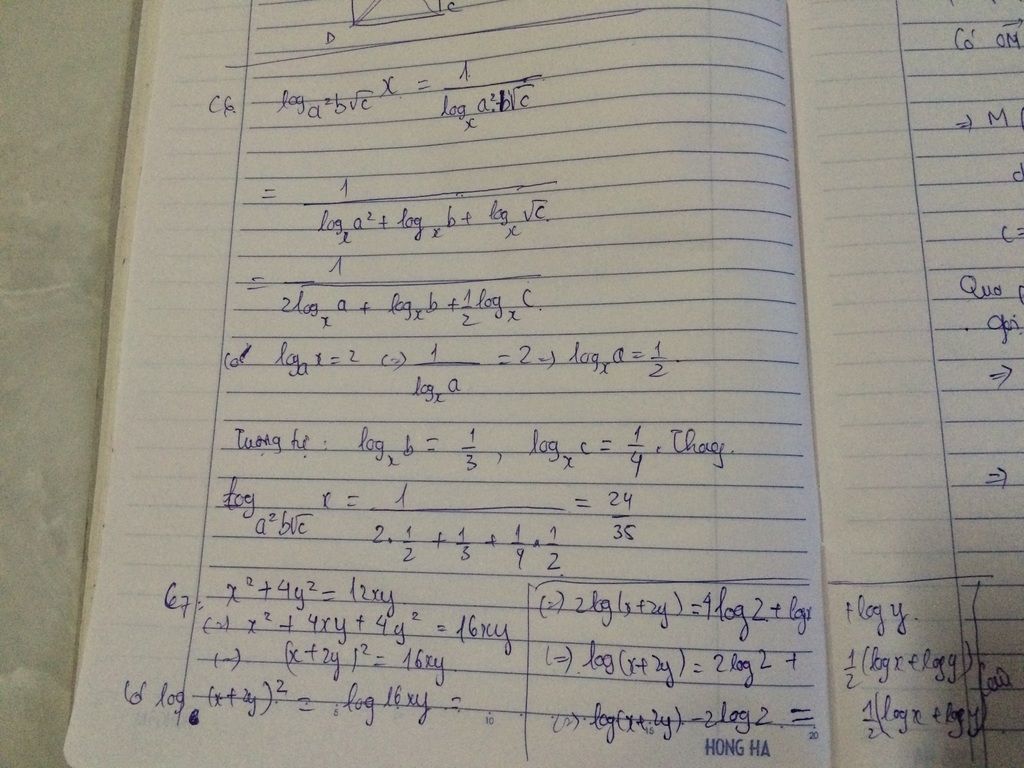 D
C
C6. log_{a²b√c} x = 1/(log_x a²b√c)
= 1/(log_x a² + log_x b + log_x √c)
= 1/(2log_x a + log_x b + 1/2 log_x c)
Có log_a x = 2 (=) 1/(log_x a) = 2 => log_x a = 1/2
Tương tự: log_x b = 1/3, log_x c = 1/4. Thay
log_{a²b√c} x = 1/(2.1/2 + 1/3 + 1/4.1/2) = 24/35
C7: x² + 4y² = 12xy
(=) x² + 4xy + 4y² = 16xy
(=) (x+2y)² = 16xy
Có log (x+2y)² = log 16xy =
(=) 2log(x+2y) = 4log2 + logx + logy.
(=) log(x+2y) = 2log2 + 1/2(logx + logy)
(=) log(x+2y) - 2log2 = 1/2(logx + logy)
10
20
HONG HA
Có OM
=> M (
c=
Qua
gọi
=>
=>